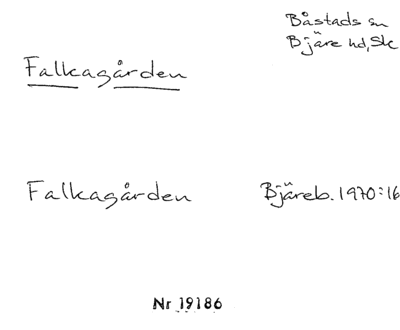 Båstads sn
Bjäre hd, Sk
Falkagården
Falkagården Bjäreb. 1970:16
Nr 19186